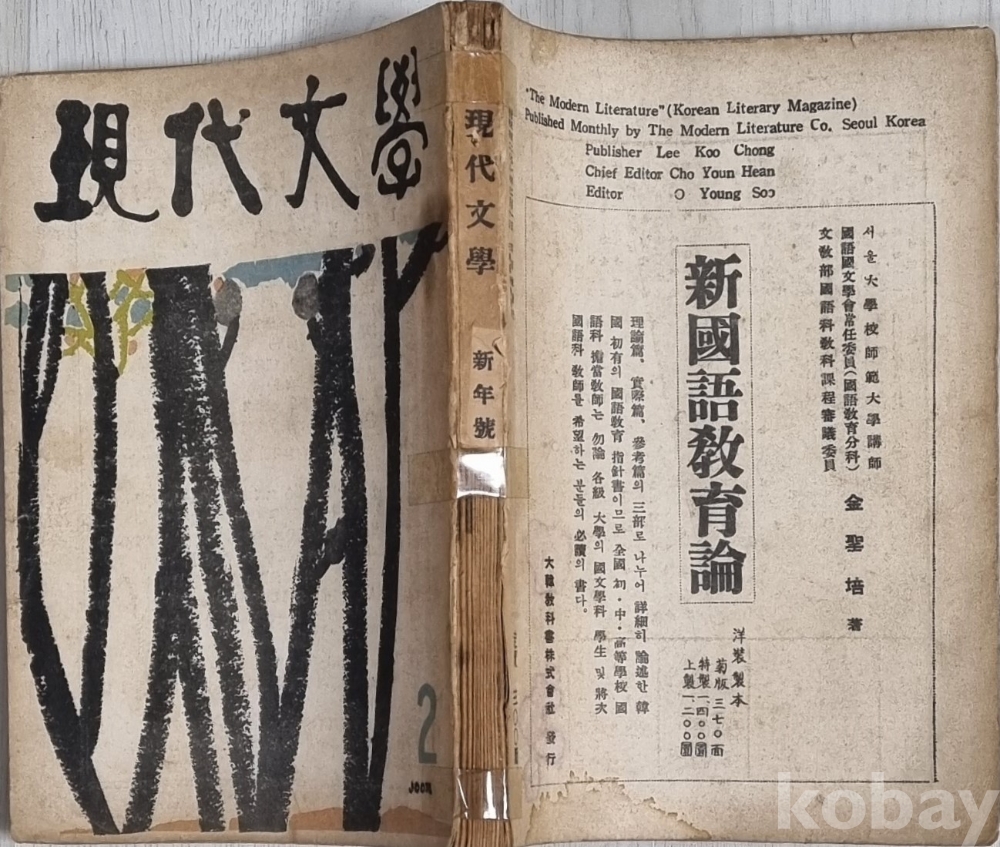 現代文學
2
JOON
現代文學
新年號
"The Modern Literature" (Korean Literary Magazine)
Published Monthly by The Modern Literature Co. Seoul Korea
Publisher Lee Koo Chong
Chief Editor Cho Youn Hean
Editor O Young Soo
서울大學校師範大學講師
國語國文學會常任委員(國語敎育分科)
文敎部國語科敎科課程審議委員
金聖培 著
新國語敎育論
洋裝製本
菊版 三七〇面
特製 一、四〇〇圜
上製 一、二〇〇圜
理論篇、實際篇、參考篇의 三部로 나누어 詳細히 論述한 韓
國 初有의 國語敎育 指針書이므로 全國 初・中・高等學校 國
語科 擔當敎師는 勿論 各級 大學의 國文學科 學生 및 將次
國語科 敎師를 希望하는 분들의 必讀의 書다。
大韓敎科書株式會社 發行
kobay